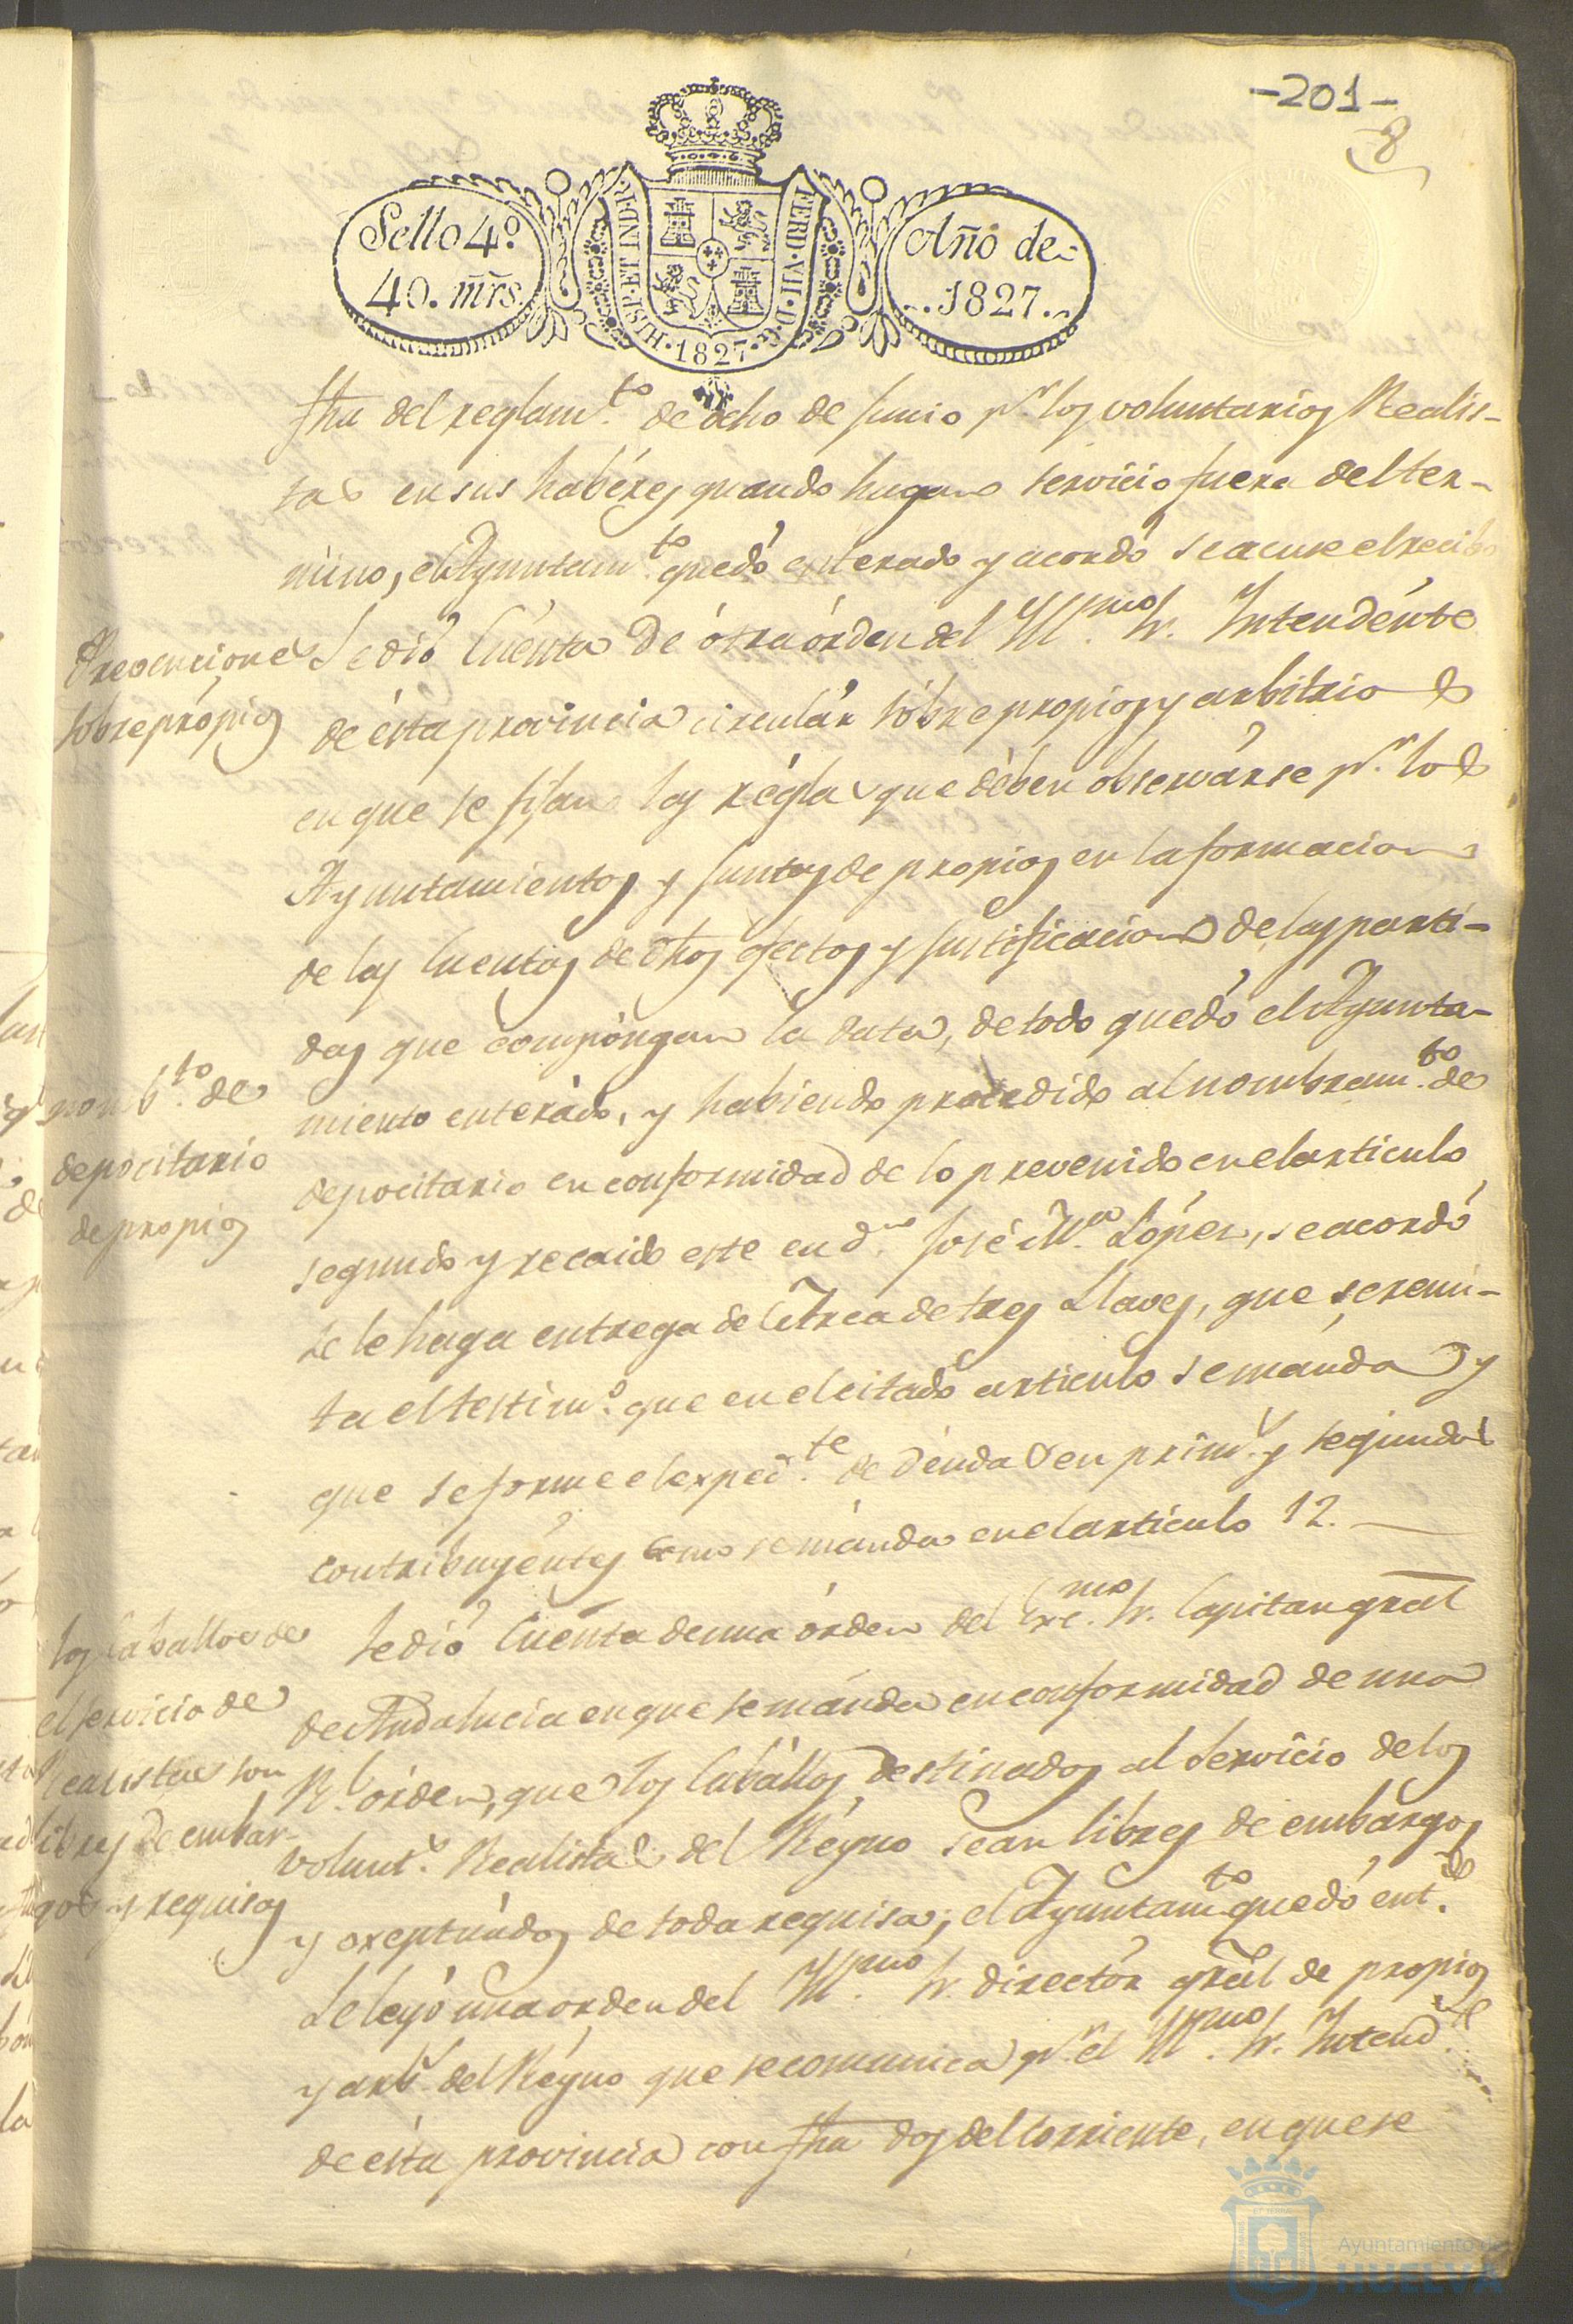 -201-
8
Sello 4º
40. mr̃s.
HISP·ET IND·R·
FERD·VII·D·G·
·1827·
Año de
1827.
fha del reglam.to de ocho de Junio p.r los voluntarios Realis-
tas en sus habéres quando hagan servicio fuera del ter-
mino, el Ayuntam.to quedó enterado y acordó se acuse el recibo
Prevenciones
sobre própios
Se dió Cuénta de ótra órden del Ill.mo Sr. Intendénte
de ésta provincia circulár sóbre propios y arbitrios
en que se fijan las régla que dében observárse p.r los
Ayuntamientos y Juntas de propios en la formacion
de las Cuentas de dhos efectos y Justificacion de las parti-
das que compóngan la data, de todo quedó el Ayunta-
nomb.to de
depocitario
de propios
miento enterádo, y habiendo procedido al nombram.to de
depocitario en conformidad de lo prevenido en el articulo
segundo y recaido este en d.n José M.a López, se acordó
se le haga entrega del Arca de tres Llaves, que se remi-
ta el testim.o que en el citado articulo se mánda y
que se forme el exped.te de déudas en prim.s y segundos
contribuyéntes como se mánda en el articulo 12.
los Caballos de
el servicio de
Realistas son
libres de embár-
gos y requisas
Se dió Cuénta de una órden del Exc.mo Sr. Capitan gral
de Andalucia en que se mánda en conformidad de una
R.l órden, que los Cabállos destinados al Servicio de los
volunt.s Realistas del Réyno sean libres de embárgos
y exeptuádos de toda requisa; el Ayuntam.to quedó ent.do
Se leyó una orden del Ill.mo Sr. directór gral de propios
y arb.s del Réyno que se comunica p.r el Ill.mo Sr. Intend.te
de ésta provincia con fha dos del Corriente, en que se
Ayuntamiento de
HUELVA